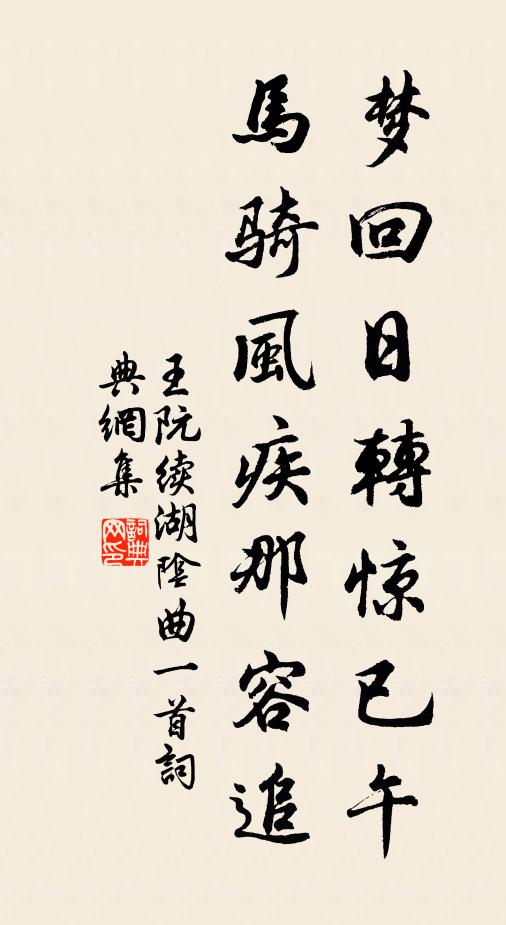 梦回日轉惊已午
馬骑風疾那容追
王阮续湖陰曲一首詞
典網集
詞典
网印